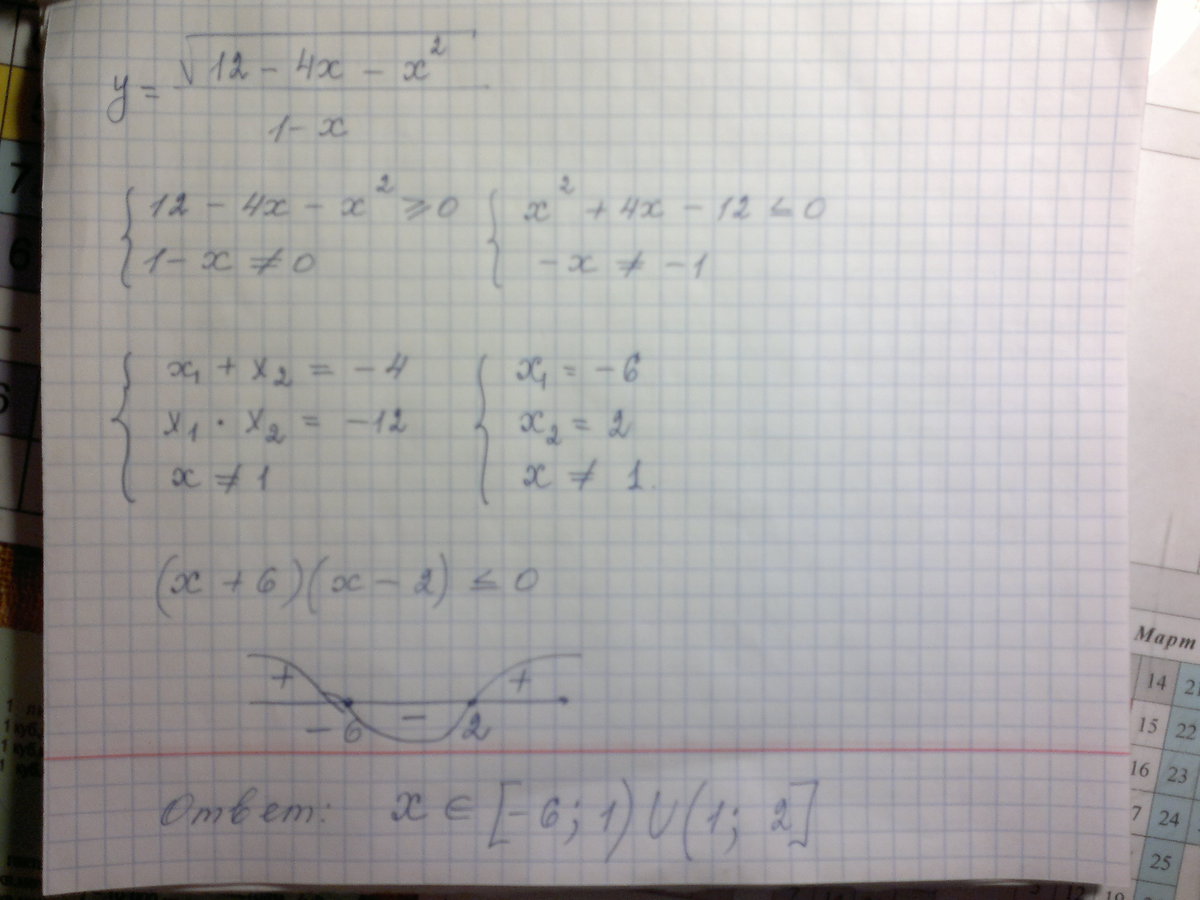 y = √(12 - 4x - x²) / (1 - x)
{ 12 - 4x - x² ⩾ 0 { x² + 4x - 12 ≤ 0
1 - x ≠ 0 -x ≠ -1
{ x₁ + x₂ = -4 { x₁ = -6
x₁ · x₂ = -12 x₂ = 2
x ≠ 1 x ≠ 1.
(x + 6)(x - 2) ≤ 0
+ - +
-6 2
Ответ: x ∈ [-6; 1) ∪ (1; 2]
7
6
Март
14 21
15 22
16 23
7 24
25